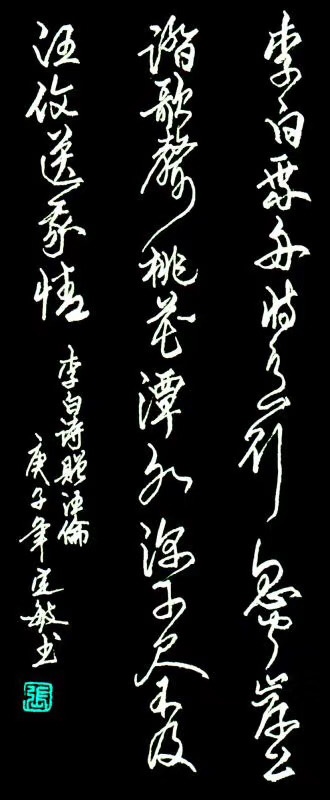 李白乘舟将欲行忽闻岸上
踏歌聲桃花潭水深千尺不及
汪伦送我情
李白诗赠汪倫
庚子年定敏书
張